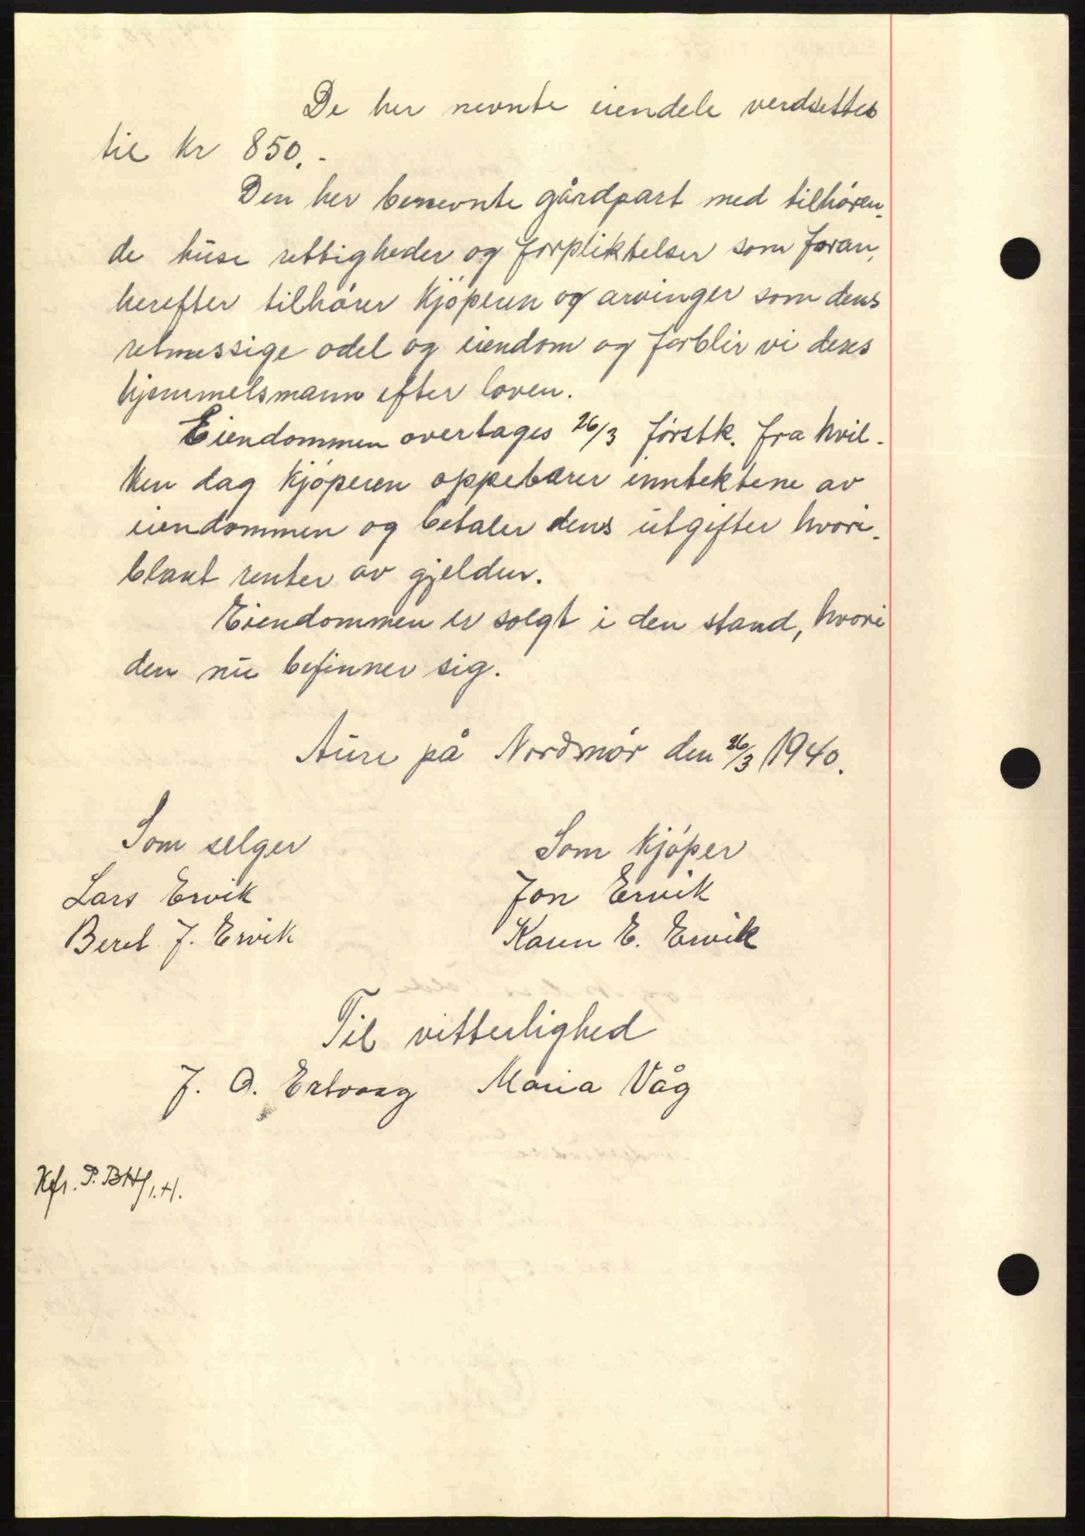 De her nevnte eiendele verdsettes
til kr 850.-
Den her benevnte gårdpart med tilhøren-
de huse rettigheder og forpliktelser som foran,
herefter tilhører kjøperen og arvinger som dens
retmessige odel og eiendom og forblir vi dens
hjemmelsmann efter loven.
Eiendommen overtages 26/3 førstk. fra hvil-
ken dag kjøperen oppebærer inntektene av
eiendommen og betaler dens utgifter hvori-
blant renter av gjelden.
Eiendommen er solgt i den stand, hvori
den nu befinner sig.
Aure på Nordmør den 26/3 1940.
Som selger
Som kjøper
Lars Ervik
Jon Ervik
Beret J. Ervik
Karen E. Ervik
Til vitterlighed
J. O. Ertvaag Maria Våg
Kfr. P.